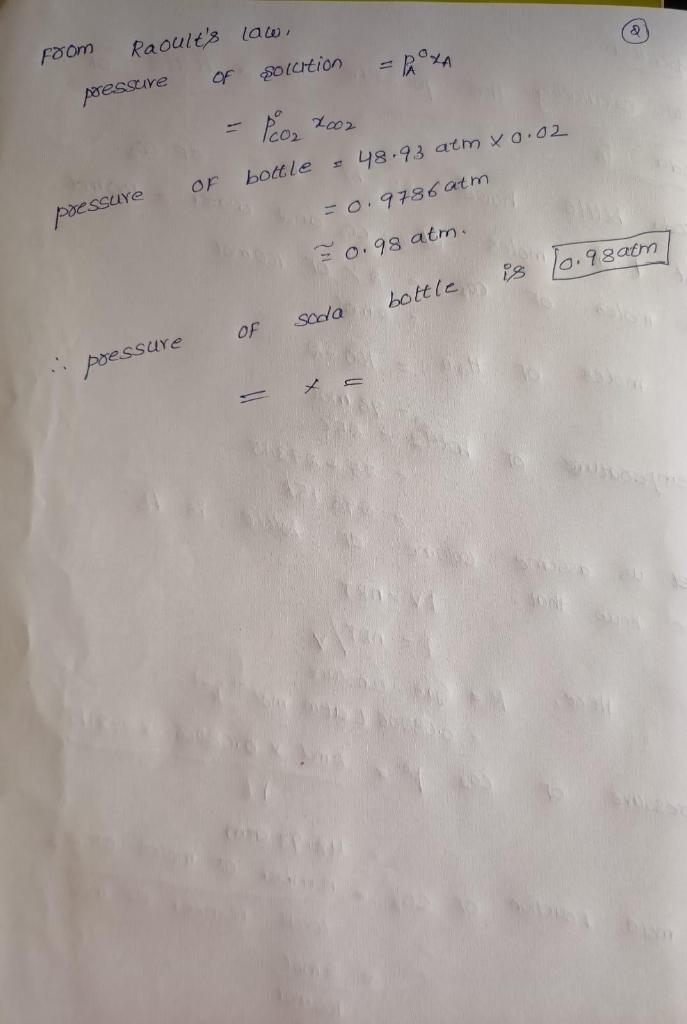 ②
From Raoult's law,
pressure of solution = P°A xA
= P°CO2 xCO2
pressure of bottle = 48.93 atm x 0.02
= 0.9786 atm
≅ 0.98 atm.
∴ pressure of soda bottle is 0.98atm
= x =